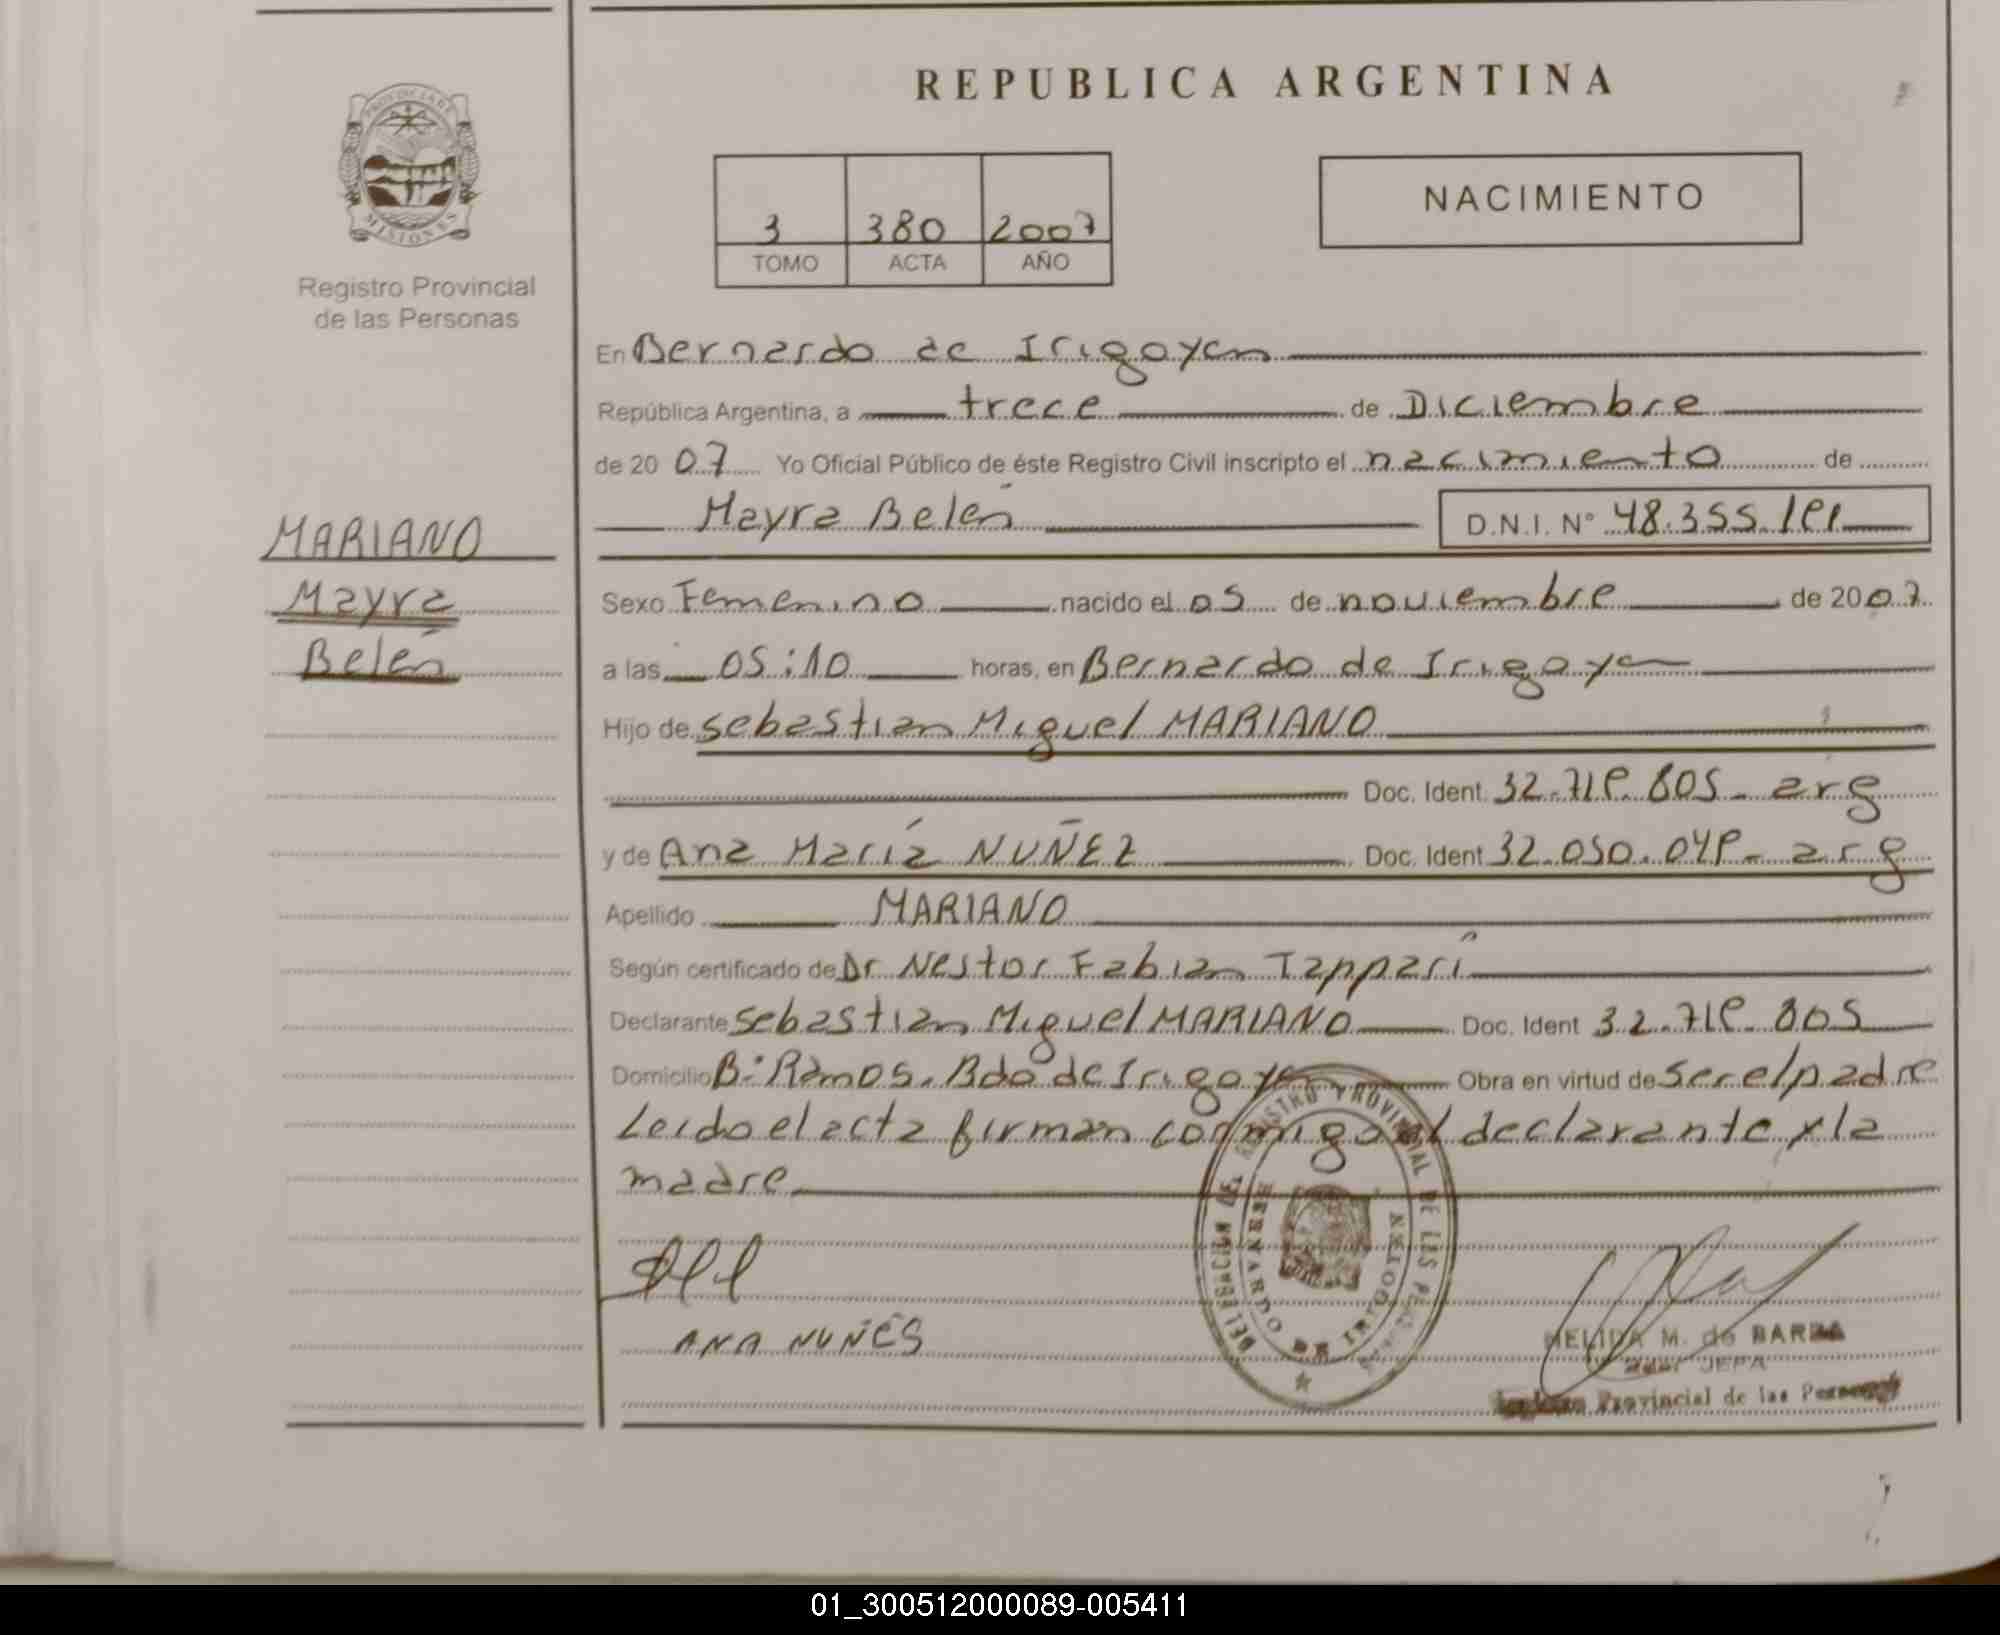 REPUBLICA ARGENTINA
PROVINCIA DE
MISIONES
Registro Provincial
de las Personas
NACIMIENTO
3 380 2007
TOMO ACTA AÑO
En Bernardo de Irigoyen
República Argentina, a trece de Diciembre
de 20 07 Yo Oficial Público de éste Registro Civil inscripto el nacimiento de
Mayra Belén D.N.I. Nº 48.355.191
MARIANO
Mayra
Belén
Sexo Femenino nacido el 05 de noviembre de 2007
a las 05:10 horas, en Bernardo de Irigoyen
Hijo de Sebastian Miguel MARIANO
Doc. Ident. 32.719.805 - arg
y de Ana María NUÑEZ Doc. Ident 32.050.049 - arg
Apellido MARIANO
Según certificado de Dr Nestor Fabian Tappari
Declarante Sebastian Miguel MARIANO Doc. Ident 32.719.805
Domicilio Bº Ramos. Bdo de Irigoyen Obra en virtud de ser el padre
Leido el acta firman conmigo el declarante y la
madre
ANA NUÑES
DELEGACION DEL REGISTRO PROVINCIAL DE LAS
BERNARDO DE IRIGOYEN
MISIONES
NELIDA M. de BARBA
JEFA
Provincial de las Personas
01_300512000089-005411